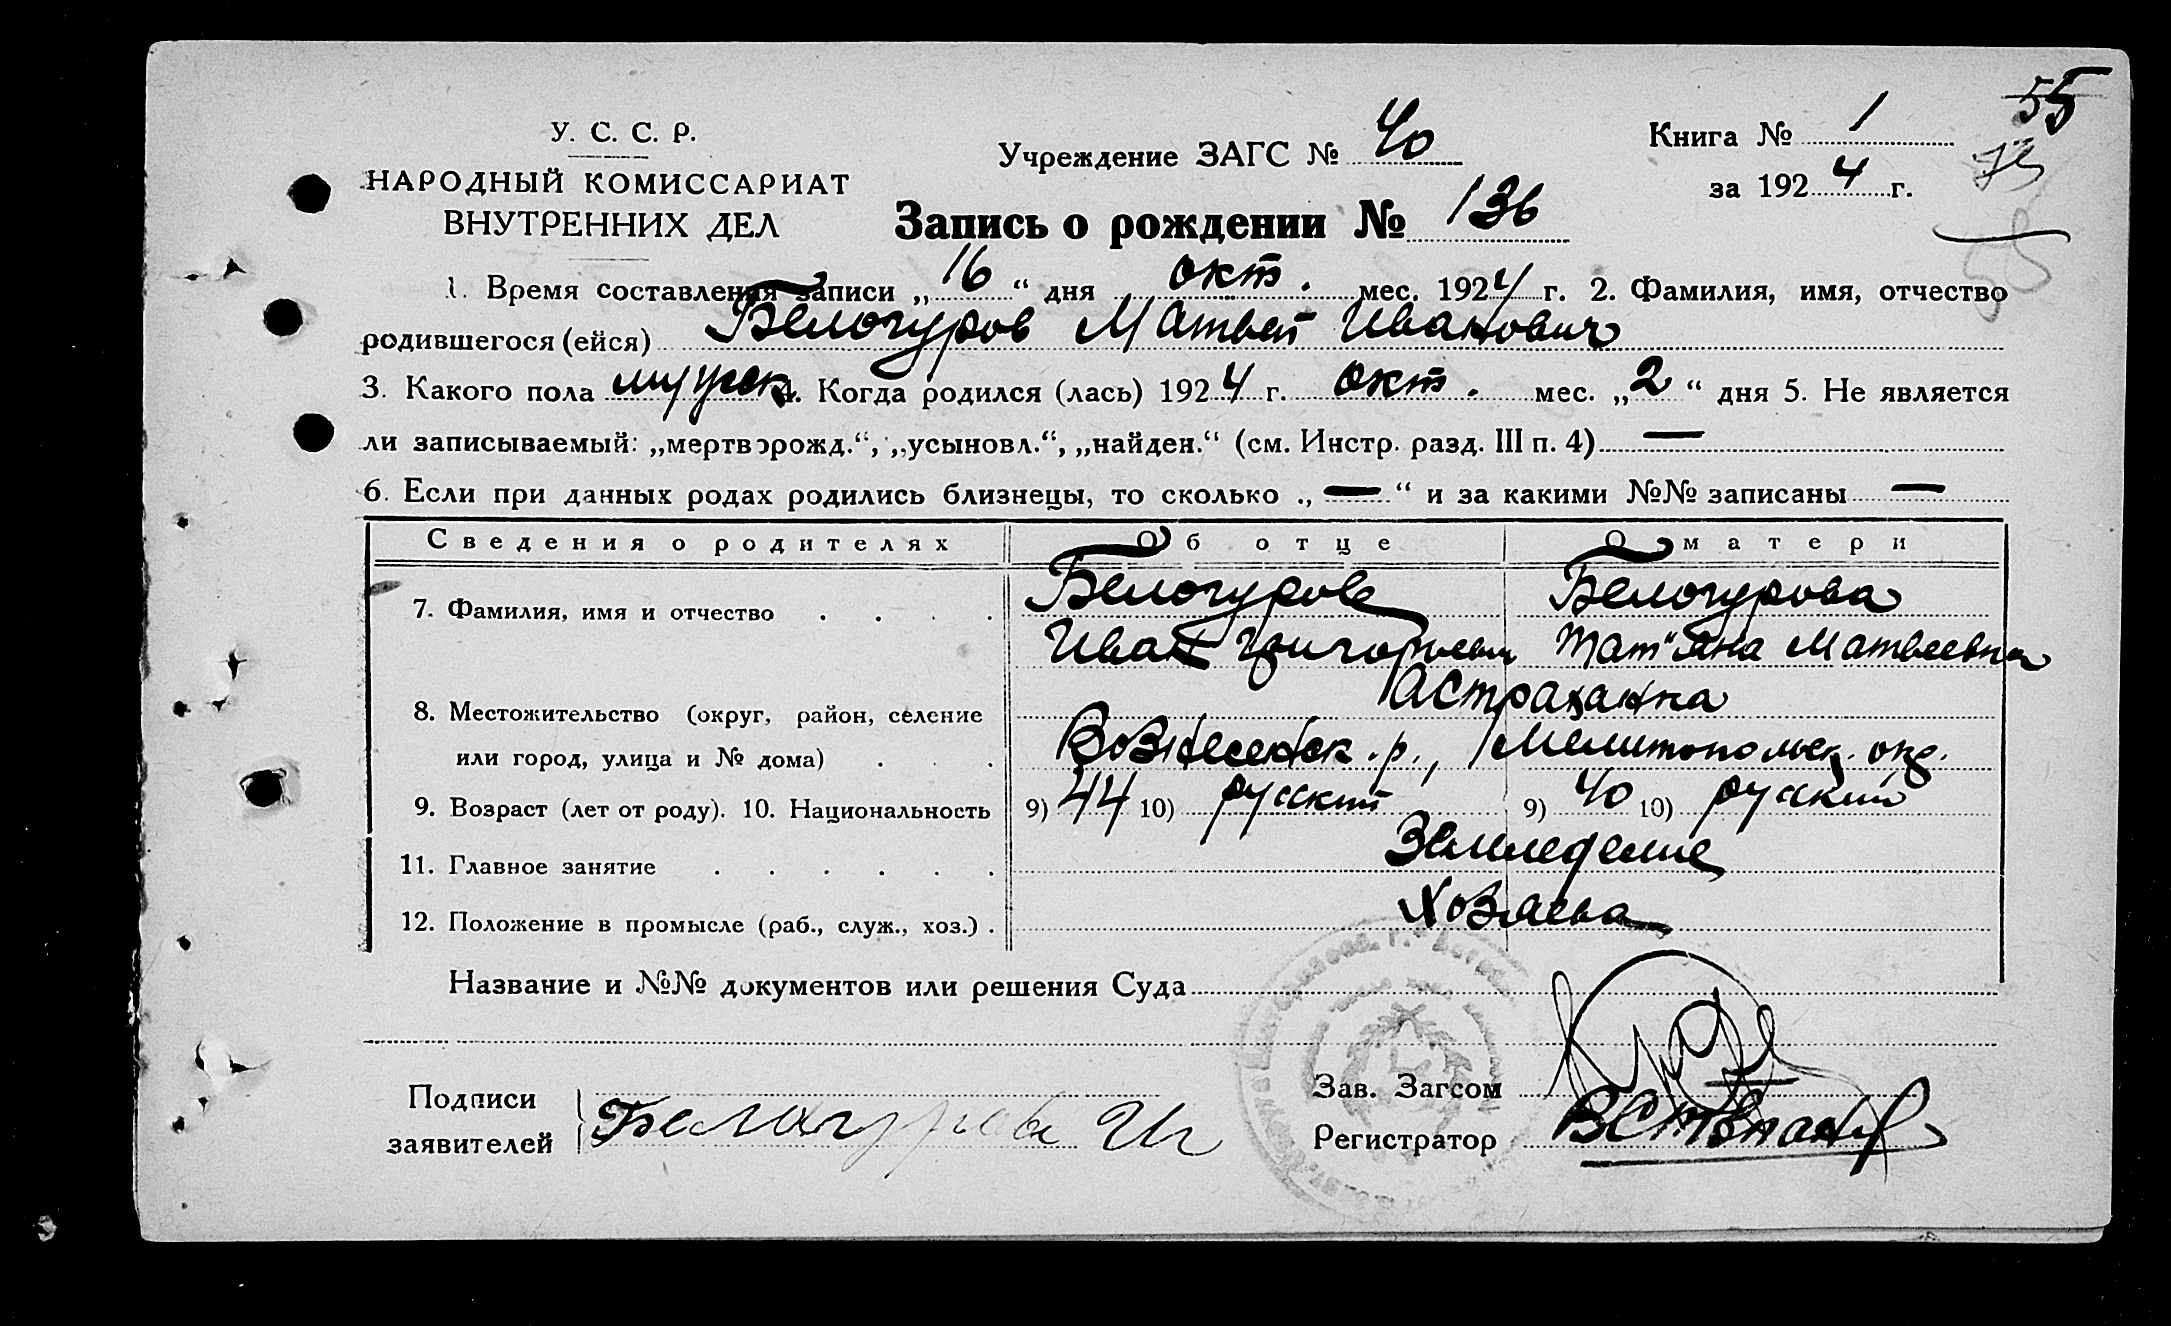 55
У. С. С. Р.
НАРОДНЫЙ КОМИССАРИАТ
ВНУТРЕННИХ ДЕЛ
Учреждение ЗАГС № 40
Книга № 1
за 1924 г.
Запись о рождении № 136
1. Время составления записи „16“ дня окт. мес. 1924 г. 2. Фамилия, имя, отчество
родившегося (ейся) Белогуров Матвей Иванович
3. Какого пола мужск 4. Когда родился (лась) 1924 г. окт. мес. „2“ дня 5. Не является
ли записываемый: „мертворожд.“, „усыновл.“, „найден.“ (см. Инстр. разд. III п. 4) —
6. Если при данных родах родились близнецы, то сколько „—“ и за какими №№ записаны —
Сведения о родителях Об отце О матери
7. Фамилия, имя и отчество Белогуров Белогурова
Иван Григорьевич Тат"яна Матвеевна
Астраханка
8. Местожительство (округ, район, селение
или город, улица и № дома) Вознесенск. р., Мелитопольск. окр.
9. Возраст (лет от роду). 10. Национальность 9) 44 10) русский 9) 40 10) русский
11. Главное занятие Земледелие
12. Положение в промысле (раб., служ., хоз.) Хозяева
Название и №№ документов или решения Суда
Подписи
заявителей Белогуров Иг
Зав. Загсом
Регистратор